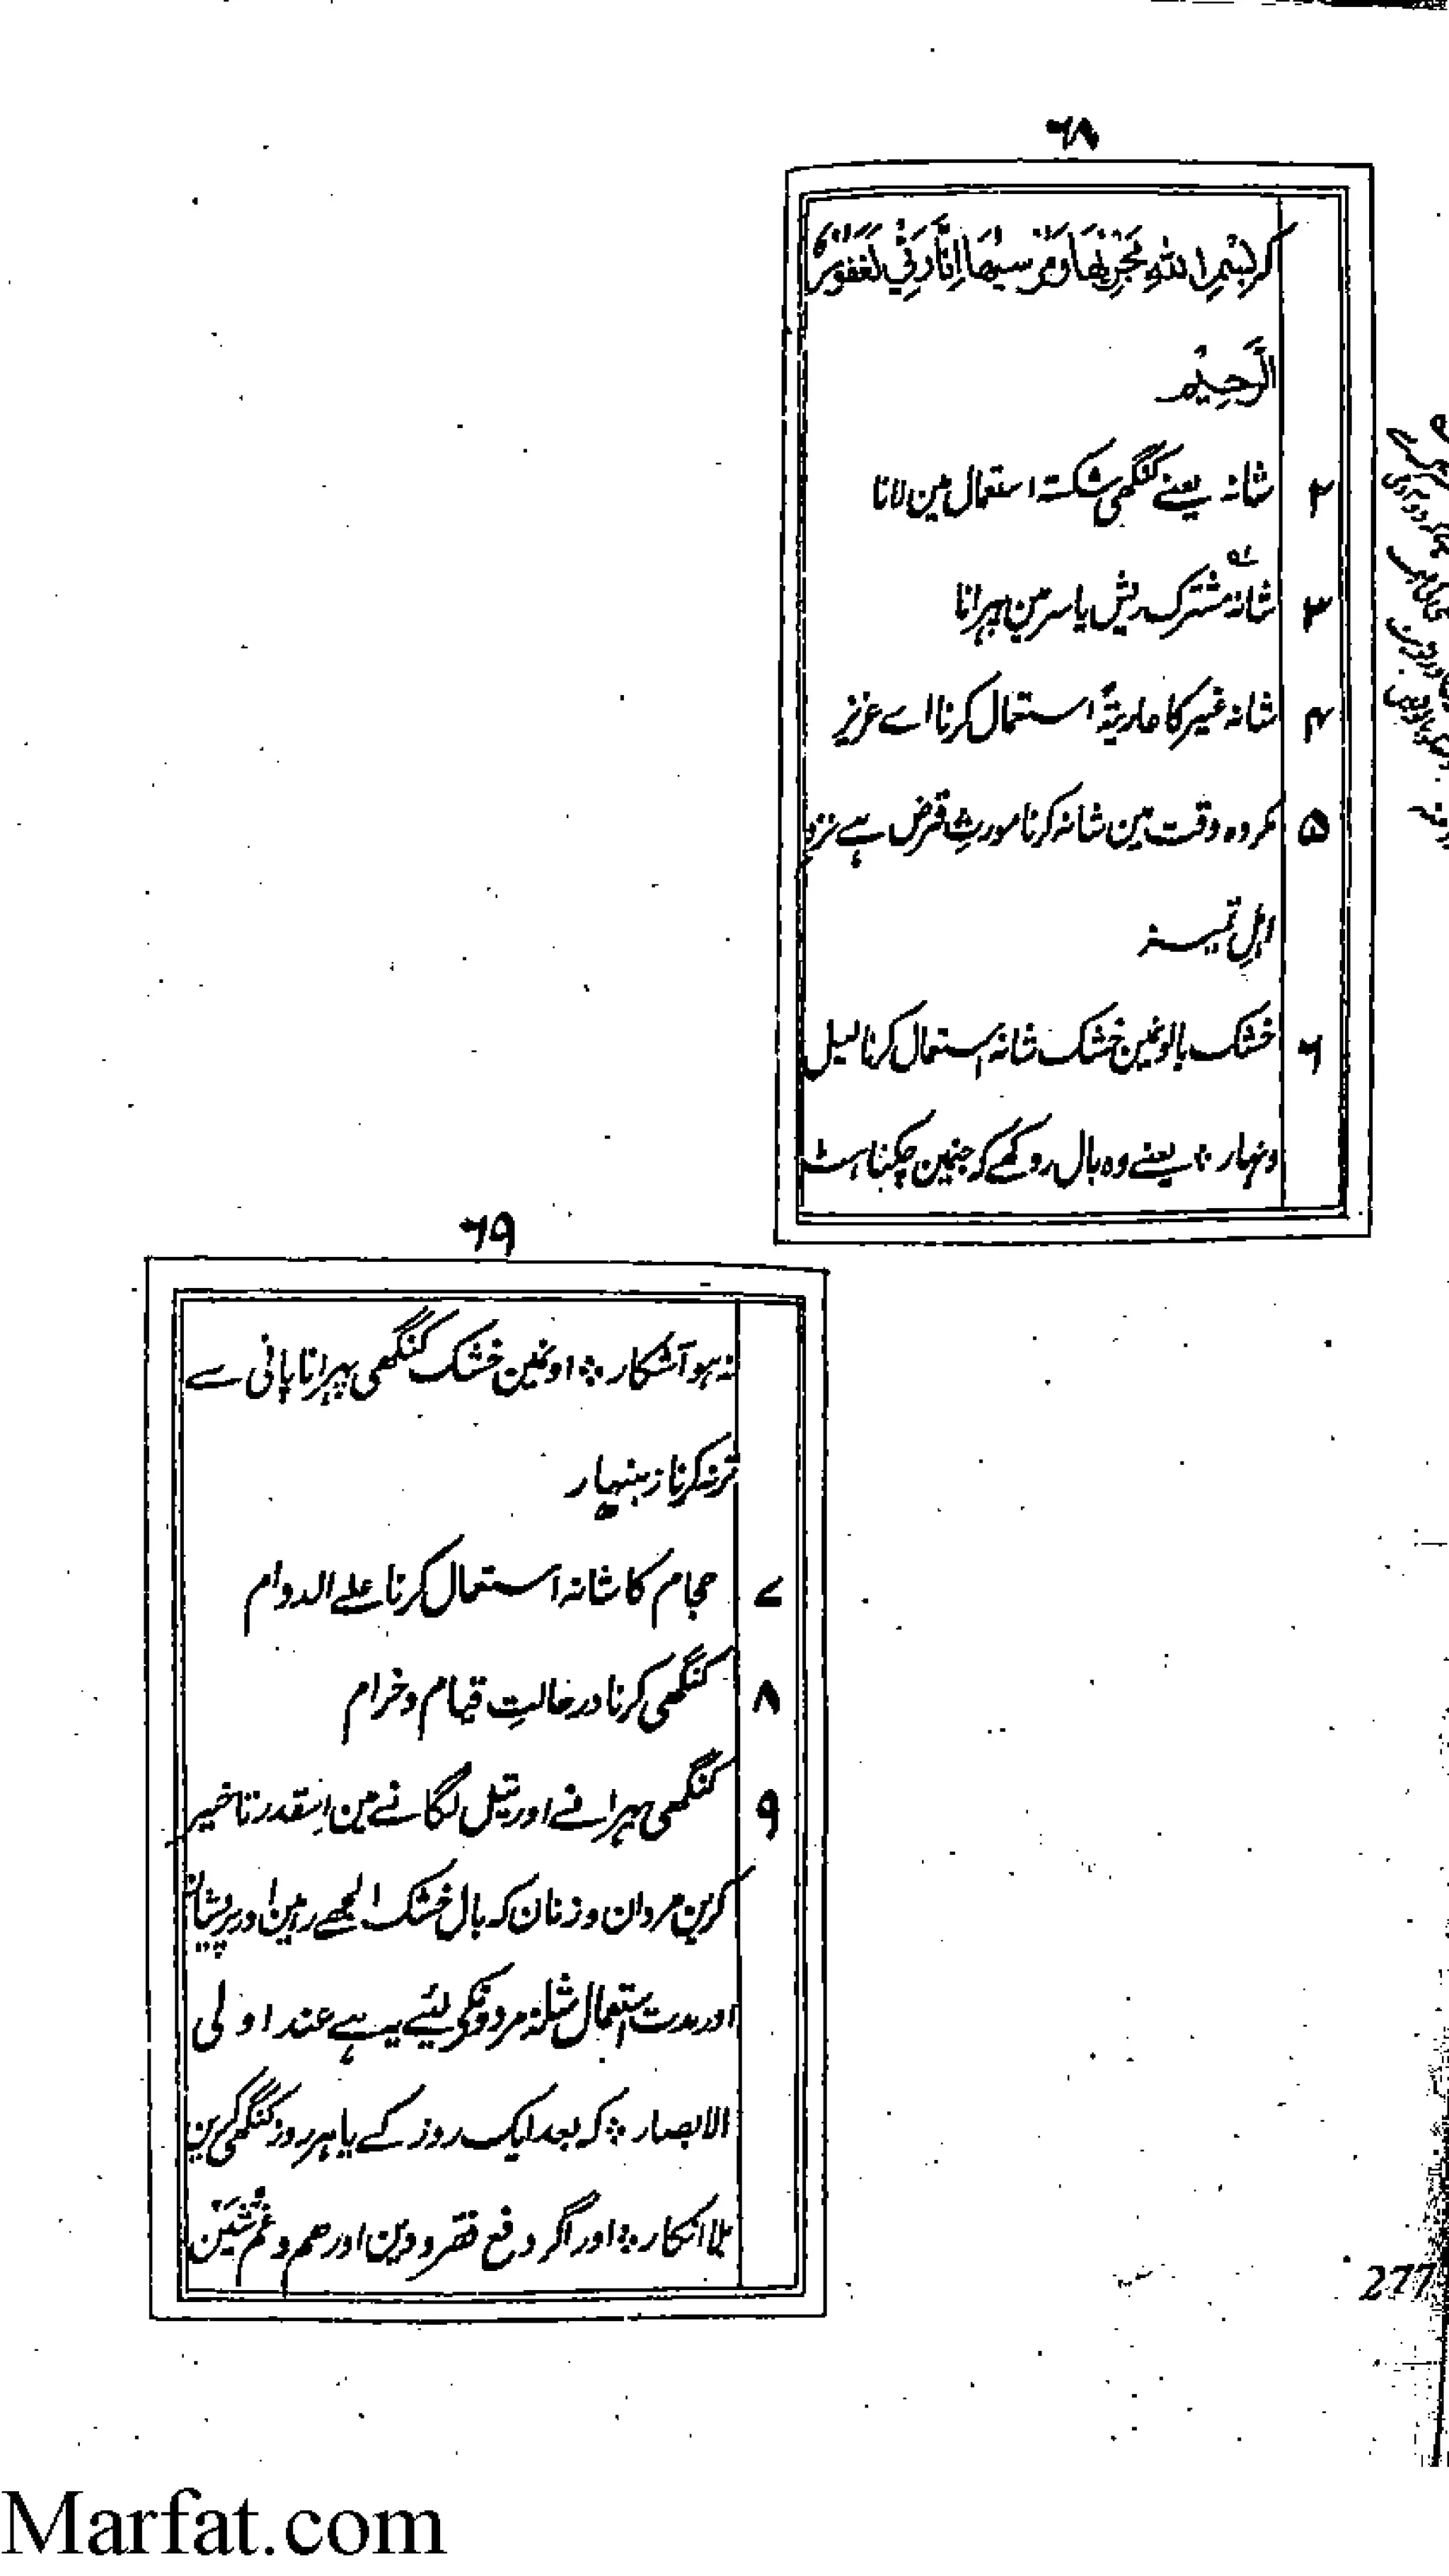 ٦٨
کر بِسْمِ اللهِ مَجْرٖىهَا وَمُرْسٰىهَا اِنَّ رَبِّیْ لَغَفُوْرٌ
الرَّحِیْم
٢ شانہ یعنے کنگھی شکستہ استعمال مین لانا
٣ شانۂ مشترک ریش یا سر مین پہرانا
۴ شانہ غیر کا عاریۃً استعمال کرنا اے عزیز
۵ مکروہ وقت مین شانہ کرنا مورثِ قرض ہے نزد
اہلِ تمیز
٦ خشک بالونمین خشک شانہ استعمال کرنا لیل
ونہار ÷ یعنے وہ بال روکھے کہ جنمین چکناہٹ
٦٩
نہ ہو آشکار ÷ اونمین خشک کنگھی پہرانا پانی سے
تر نہ کرنا زینہار
٧ حجام کا شانہ استعمال کرنا علے الدوام
٨ کنگھی کرنا در حالتِ قیام و خرام
٩ کنگھی پہرانے اور تیل لگانے مین اِسقدر تاخیر
کرین مردان و زنان کہ بال خشک الجھے رہین اور پریشان
اور مدت استعمال شانہ مردونکے لیئے یہ ہے عند اولی
الابصار ÷ کہ بعد ایک روز کے یا ہر روز کنگھی کرین
بلا انکار ÷ اور اگر دفع فقر و دین اور ھم و غم
277
Marfat.com